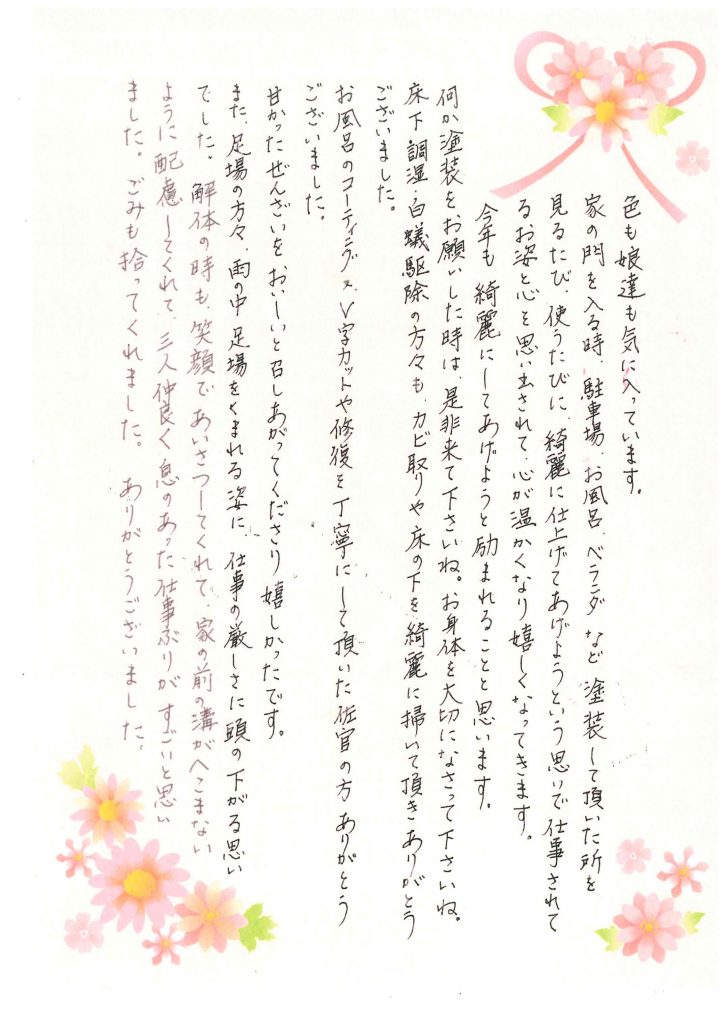 色も娘達も気に入っています。
家の門を入る時、駐車場、お風呂、ベランダなど塗装して頂いた所を
見るたび、使うたびに、綺麗に仕上げてあげようという思いで仕事されて
るお姿と心を思い出されて、心が温かくなり嬉しくなってきます。
今年も綺麗にしてあげようと励まれることと思います。
何か塗装をお願いした時は、是非来て下さいね。お身体を大切になさって下さいね。
床下調湿・白蟻駆除の方々も、カビ取りや床の下を綺麗に掃いて頂きありがとう
ございました。
お風呂のコーティングや、V字カットや修復を丁寧にして頂いた佐官の方ありがとう
ございました。
甘かったぜんざいをおいしいと召しあがってくださり嬉しかったです。
また、足場の方々、雨の中足場をくまれる姿に、仕事の厳しさに頭の下がる思い
でした。解体の時も、笑顔であいさつしてくれて、家の前の溝がへこまない
ように配慮してくれて、三人仲良く息のあった仕事ぶりがすごいと思い
ました。ごみも拾ってくれました。ありがとうございました。